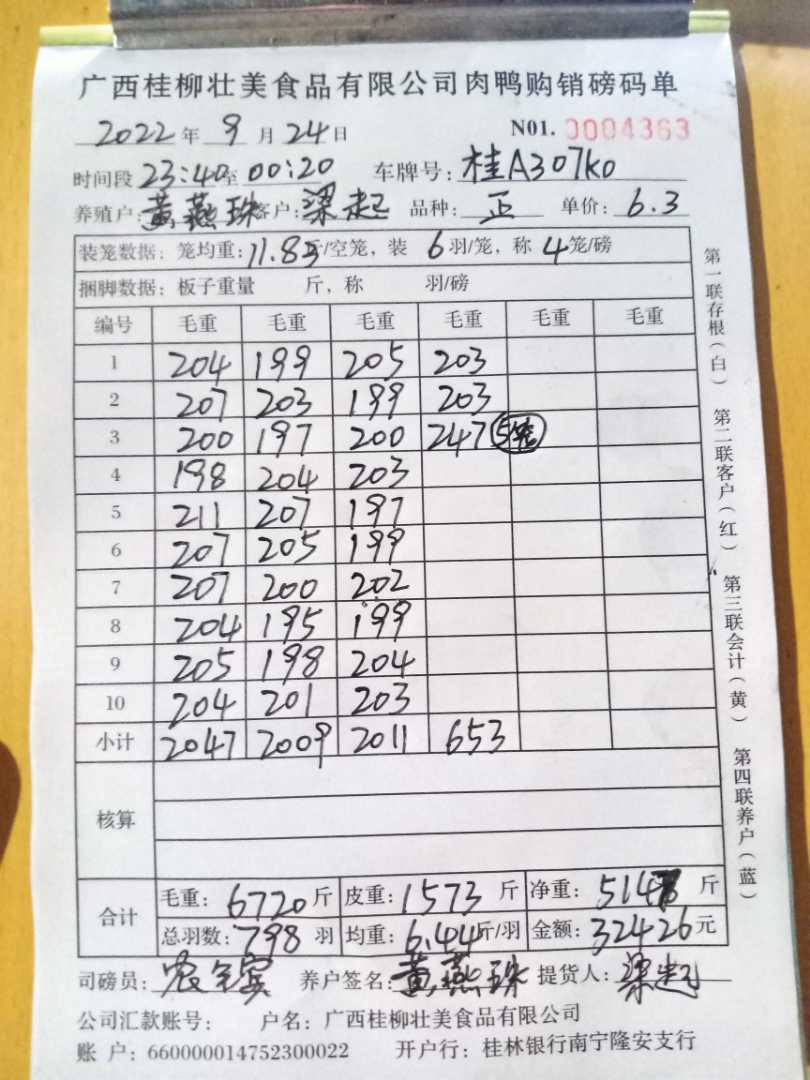 广西桂柳壮美食品有限公司肉鸭购销磅码单
2022年9月24日 N01. 0004363
时间段23:40至00:20 车牌号:桂A307K0
养殖户:黄燕珠 客户:梁起 品种:正 单价:6.3
装笼数据:笼均重:11.83斤/空笼,装6羽/笼,称4笼/磅
捆脚数据:板子重量 斤,称 羽/磅
编号 毛重 毛重 毛重 毛重 毛重 毛重
1 204 199 205 203
2 207 203 199 203
3 200 197 200 247 5笼
4 198 204 203
5 211 207 197
6 207 205 199
7 207 200 202
8 204 195 199
9 205 198 204
10 204 201 203
小计 2047 2009 2011 653
核算
合计 毛重:6720斤 皮重:1573斤 净重:5147斤
总羽数:798羽 均重:6.44斤/羽 金额:32426元
司磅员: 养户签名:黄燕珠 提货人:梁起
公司汇款账号: 户名:广西桂柳壮美食品有限公司
账 户:660000014752300022 开户行:桂林银行南宁隆安支行
第一联存根(白) 第二联客户(红) 第三联会计(黄) 第四联养户(蓝)